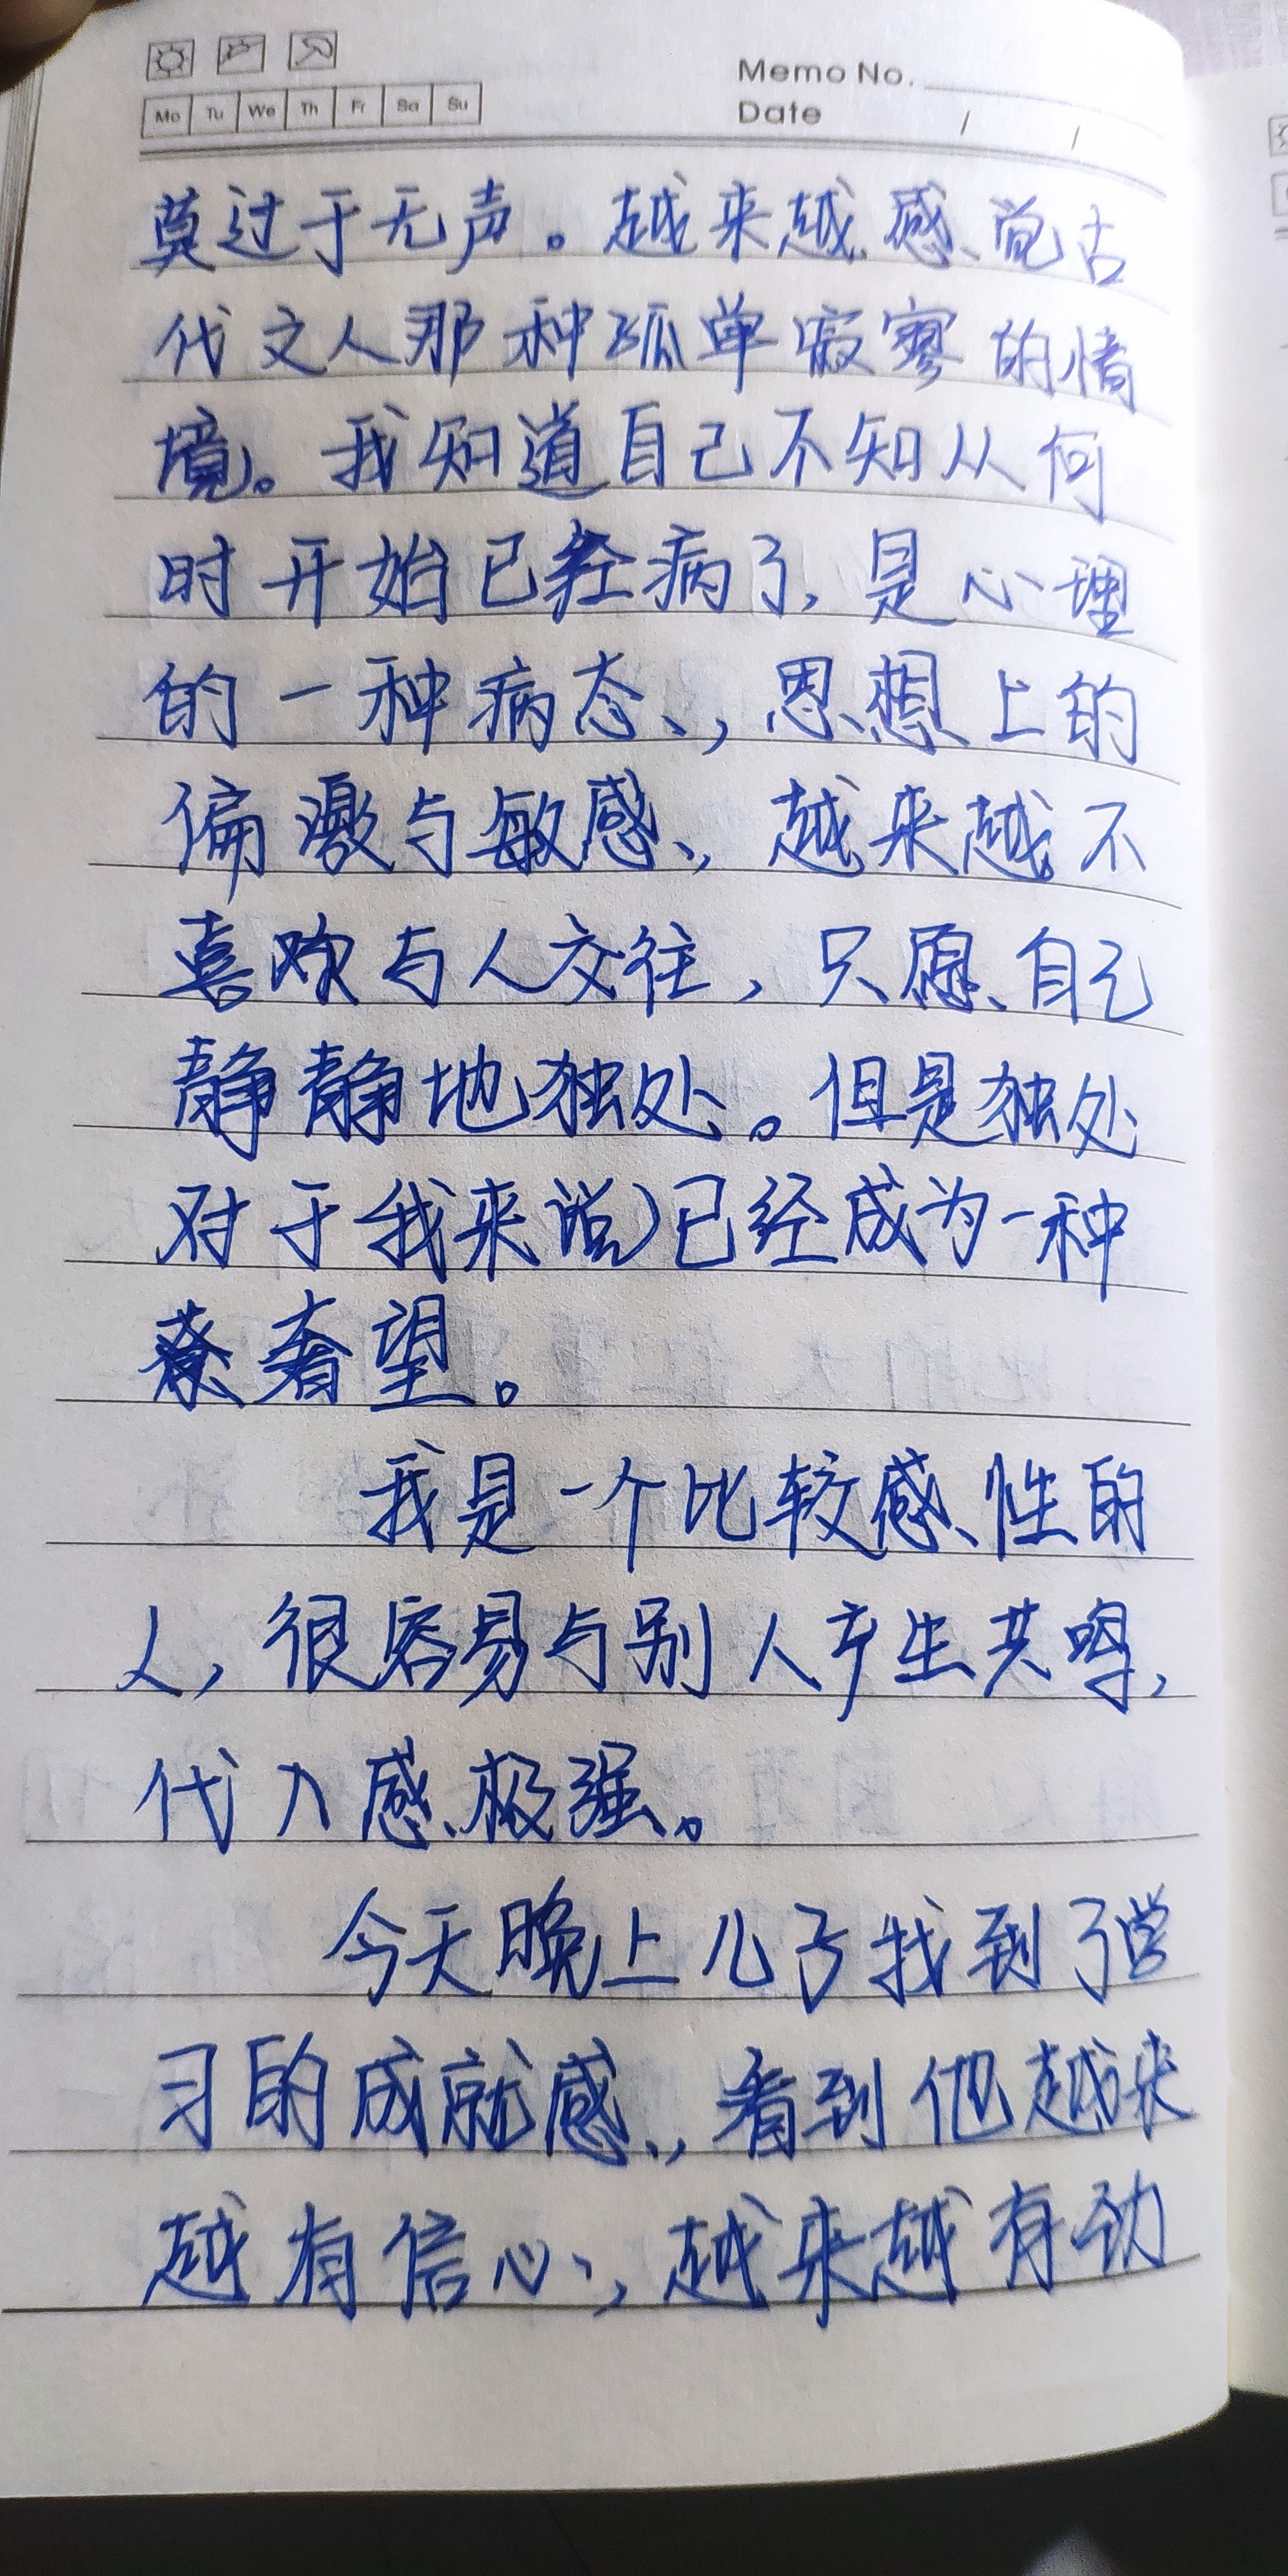 Memo No.
Mo Tu We Th Fr Sa Su
Date / /
莫过于无声。越来越感觉古
代文人那种孤单寂寥的情
境。我知道自己不知从何
时开始已经病了,是心理
的一种病态,思想上的
偏激与敏感,越来越不
喜欢与人交往,只愿自己
静静地独处。但是独处
对于我来说已经成为一种
奢望。
我是一个比较感性的
人,很容易与别人产生共鸣,
代入感极强。
今天晚上儿子找到了学
习的成就感,看到他越来
越有信心,越来越有劲